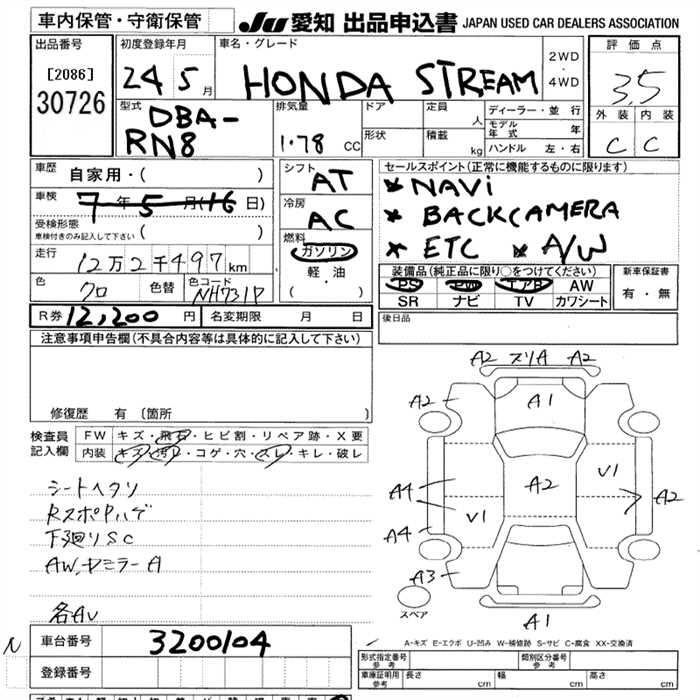 車内保管・守衛保管
JU 愛知 出品申込書 JAPAN USED CAR DEALERS ASSOCIATION
出品番号
[2086]
30726
初度登録年月
24年5月
車名・グレード
HONDA STREAM
2WD
・
4WD
評価点
3.5
外装 内装
C C
型式
DBA-
RN8
排気量
1.78 CC
ドア
形状
定員 人
積載 kg
ディーラー・並行
モデル年式 年
ハンドル 左・右
車歴 自家用・( )
車検 7年5月(16日)
受検形態
車検付きのみ記入して下さい ( )
走行 12万2千497km
色 クロ 色替 色コード NH731P
シフト
AT
冷房
AC
燃料
ガソリン
軽・油
( )
セールスポイント(正常に機能するものに限ります)
★ NAVi
★ BACKCAMERA
★ ETC ★ A/W
装備品(純正品に限り○をつけてください)
PS PW エアB AW
SR ナビ TV カワシート
新車保証書
有・無
R券 12,200円 名変期限 月 日
後日品
注意事項申告欄(不具合内容等は具体的に記入して下さい)
修復歴 有 〔箇所 〕
検査員
記入欄
FW キズ・飛石・ヒビ割・リペア跡・X要
内装 キズ・汚レ・コゲ・穴・スレ・キレ・破レ
シートヘタリ
RスポPハゲ
下廻りSC
AW,ドミラーA
各AU
A2 スリA A2
A2 A1
A4 V1 A2 V1 A2
A4
A3
スペア
A1
A-キズ E-エクボ U-凹み W-補修跡 S-サビ C-腐食 XX-交換済
N 車台番号 3200104
登録番号
形式指定番号
参考
類別区分番号
参考
車庫証明用
参考
長さ cm 幅 cm 高さ cm